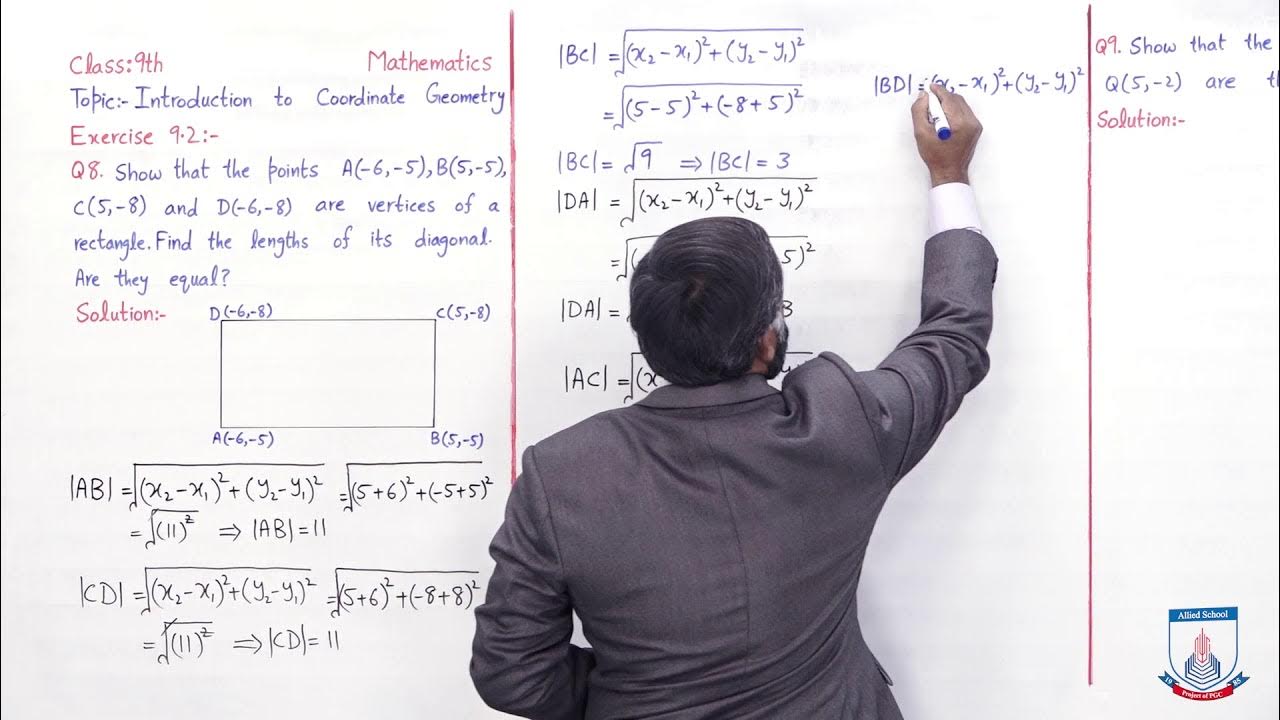 Class:9th Mathematics
Topic:- Introduction to Coordinate Geometry
Exercise 9.2:-
Q8. Show that the points A(-6,-5), B(5,-5),
C(5,-8) and D(-6,-8) are vertices of a
rectangle. Find the lengths of its diagonal.
Are they equal?
Solution:-
D(-6,-8) C(5,-8)
A(-6,-5) B(5,-5)
|AB| = √(x₂-x₁)²+(y₂-y₁)² = √(5+6)²+(-5+5)²
= √(11)² ⇒ |AB| = 11
|CD| = √(x₂-x₁)²+(y₂-y₁)² = √(5+6)²+(-8+8)²
= √(11)² ⇒ |CD| = 11
|BC| = √(x₂-x₁)²+(y₂-y₁)²
= √(5-5)²+(-8+5)²
|BC| = √9 ⇒ |BC| = 3
|DA| = √(x₂-x₁)²+(y₂-y₁)²
= √( 5)²
|DA| = 3
|AC| = √(x
|BD| = (x₂-x₁)²+(y₂-y₁)²
Q9. Show that the
Q(5,-2) are
Solution:-
Allied School
19 85
Project of PGC